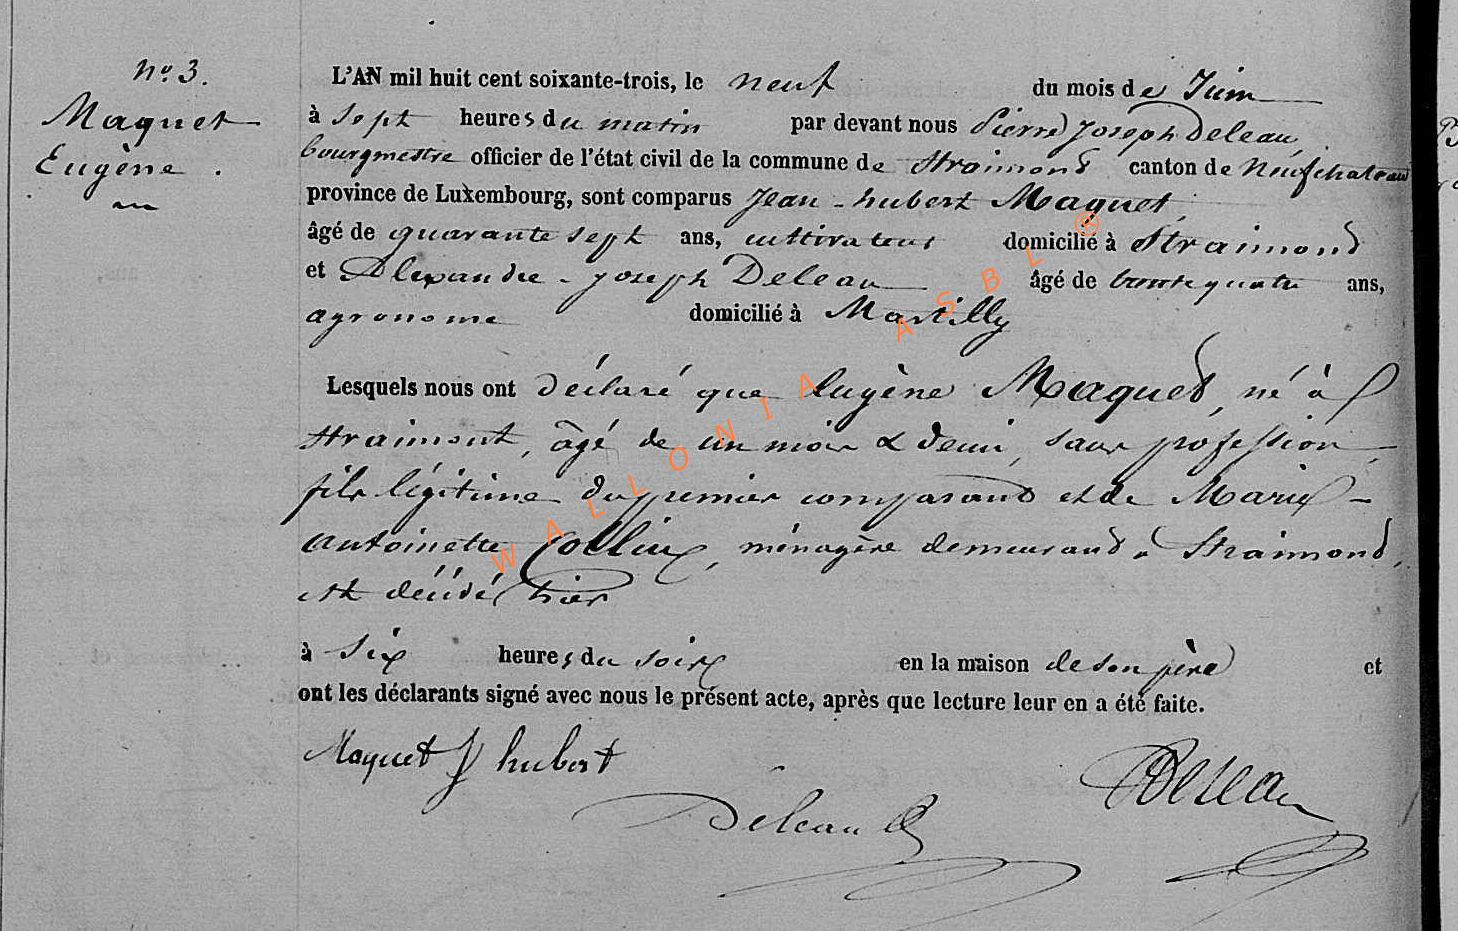 No. 3.
Maquet
Eugène.
L'AN mil huit cent soixante-trois, le neuf du mois de Juin
à sept heures du matin par devant nous Pierre Joseph Deleau,
bourgmestre officier de l'état civil de la commune de Straimont canton de Neufchateau
province de Luxembourg, sont comparus Jean-hubert Maquet,
âgé de quarante sept ans, cultivateur domicilié à Straimont
et Alexandre-Joseph Deleau âgé de trente quatre ans,
agronome domicilié à Martilly
Lesquels nous ont déclaré que Eugène Maquet, né à
Straimont, âgé de un mois & demi, sans profession,
fils légitime du premier comparant et de Marie-
antoinette Collin, ménagère demeurant à Straimont,
est décédé hier
à six heures du soir en la maison de son père et
ont les déclarants signé avec nous le présent acte, après que lecture leur en a été faite.
Maquet J hubert
Deleau
Deleau
WALLONIA ASBL ®